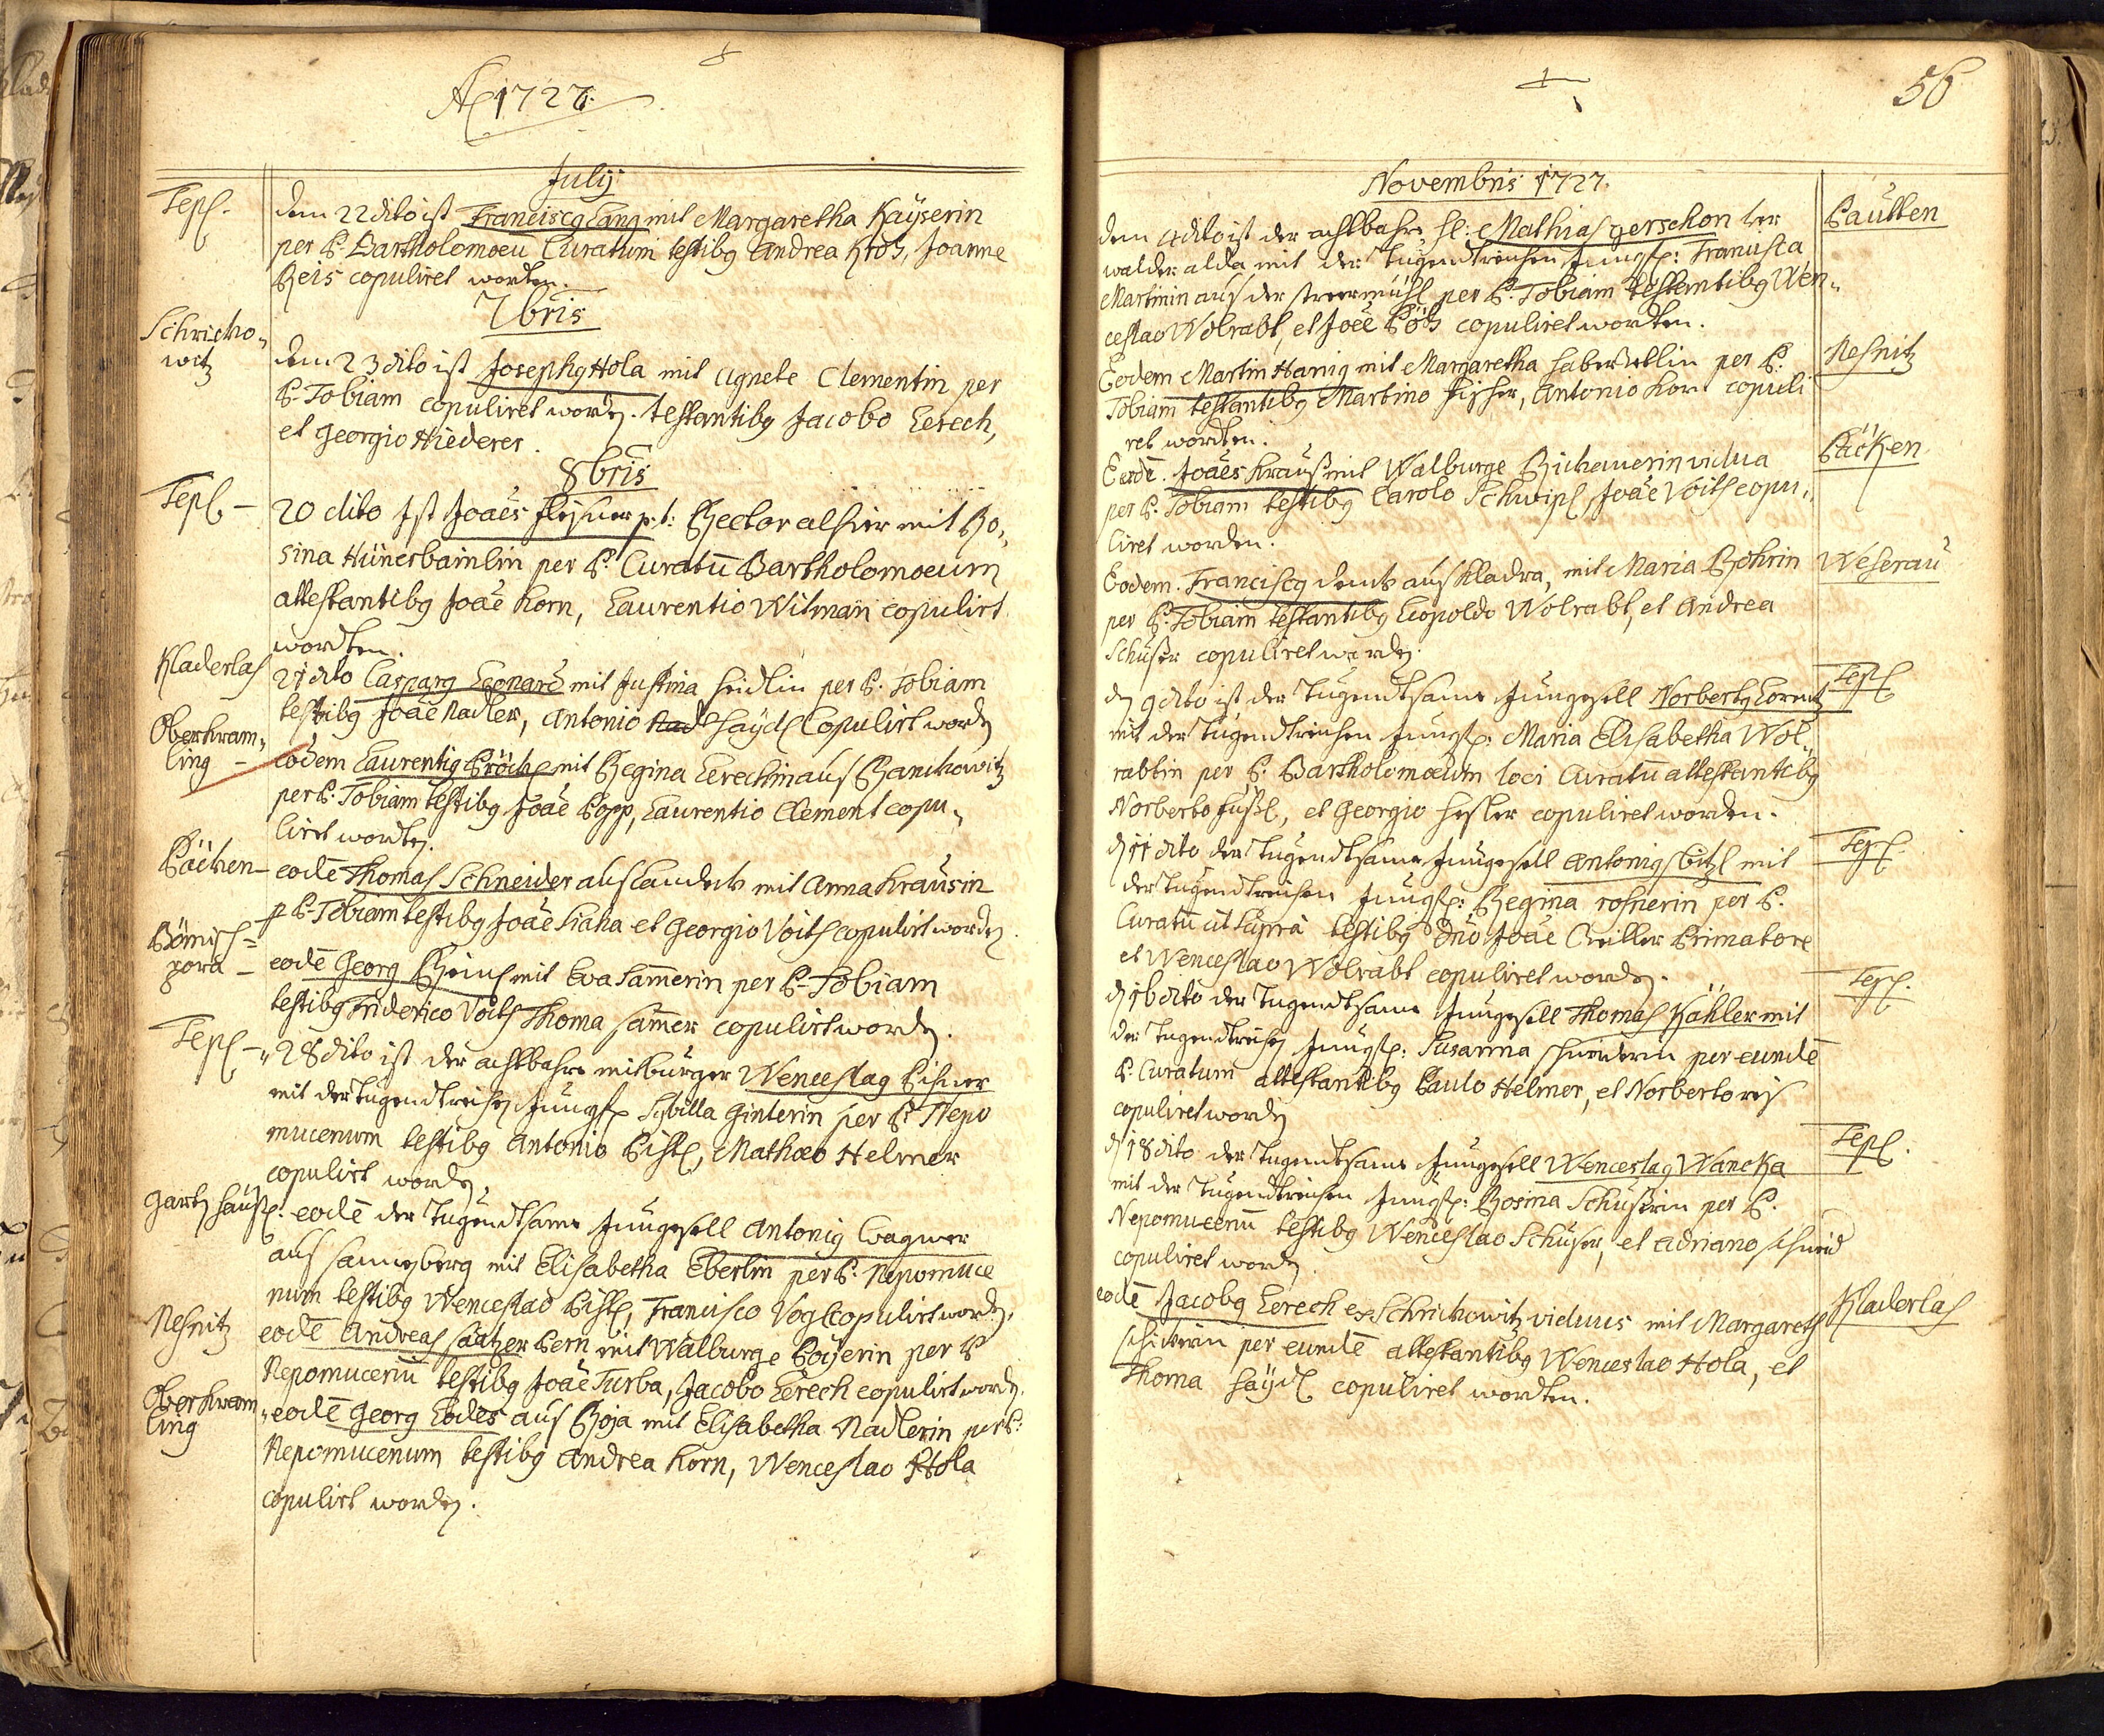 Ao 1727.
July
Tepl.
dem 22 dito ist Franciscq Lang mit Margaretha Kaÿserin
per P. Bartholomoeu Curatum testibq Andrea Kroh, Joanne
Reis copuliret worden.
7bris
Schricho„
witz
dem 23 dito ist Josephq Hola mit Agnete Clementin per
P. Tobiam copuliret worden. testantibq Jacobo Lerech,
et Georgio Hiederer.
8bris
Tepl. –
20 dito Ist Joães Fleisner p.t. Rector alhier mit Ro„
sina Hünerbainlin per P. Curatū Bartholomoeum
attestantibq Joãe Korn, Laurentio Witman copulirt
wordten.
Kladerlas
21 dito Casparq Leonard mit Justina Heidlin per P. Tobiam
testibq Joãe Nadler, Antonio Haÿdl Copulirt worden
Oberkram„
ling –
eodem Laurentiq Pröckl mit Regina Lerechin aus Ranchowitz
per P. Tobiam testibq Joãe Popp, Laurentio Clement copu„
liret worden.
Päcken –
eodē Thomas Schneider aus Landeck mit Anna Krausin
p P. Tobiam testibq Joãe Hiaha et Georgio Voith copulirt worden
Bömisch=
pora –
eodē Georg Heinl mit Eva Samerin per P. Tobiam
testibq Friderico Voith Thoma Samer copulirt worden.
Tepl –
„28 dito ist der achtbahre mitbürger Wenceslaq Pihner
mit der tugendtreichen Jungfr. Sybilla Ginterin per P. Nepo
mucenum testibq Antonio Pistl, Mathæo Helmer
copulirt worden.
Garten häusl.
eodē der tugendtsame Jungesell Antoniq Wagner
aus Sanngberg mit Elisabetha Eberlin per P. Nepomuce
num testibq Wenceslao Pistl, Francisco Vogl copulirt worden.
Nesnitz
eodē Andreas Saatzer Pern mit Walburge Poÿerin per P
Nepomucenū testibq Joãe Turba, Jacobo Lerech copulirt worden.
Oberkram
ling
„eodē Georg Lodes aus Roja mit Elisabetha Nadlerin per P.
Nepomucenum testibq Andrea Korn, Wenceslao Hola
copulirt worden.
56
Novembris 1727.
dem 4 dito ist der achtbahre H: Mathias Gerschon ver
Pautten
walder alda mit der tugendtreichen Jungfr: Francisca
Martinin aus der Streermühl per P. Tobiam testantibq Wen„
ceslao Wolrabt, et Joãe Pötz copuliret worden.
Eodem Martin Hanig mit Margaretha Haberzetlin per P.
Nesnitz
Tobiam testantibq Martino Fischer, Antonio Korn copuli
ret wordten.
Eodē. Joães Krauß mit Walburge Richauerin vidua
Päcken
per P. Tobiam testibq Carolo Schwipl, Joãe Voith copu„
liret worden.
Eodem. Franciscq Denk aus Kladra, mit Maria Röhrin
Weserau
per P. Tobiam testantibq Leopoldo Wolrabt, et Andrea
Schuser copuliret worden.
den 9 dito ist der tugendtsame Jungesell Norbertq Lorentz
Tepl
mit der tugendtreichen Jungfr: Maria Elisabetha Wol„
rabtin per P. Bartholomæum loci Curatū attestantibq
Norberto Fußl, et Georgio Hesler copuliret worden.
den 11 dito der tugendtsame Jungesell Antoniq Pitzl mit
Tepl.
der tugendtreichen Jungfr: Regina Rosnerin per P.
Curatū ut supra testibq Dno Joãe Creiller Primatore
et Wenceslao Wolrabt copuliret worden.
den 16 dito der tugendtsame Jungesell Thomas Kähler mit
Tepl.
der tugendtreichen Jungfr: Susanna Schneiderin per eundē
P. Curatum attestantibq Paulo Helmer, et Norberto Reis
copuliret worden
den 18 dito der tugendtsame Jungesell Wenceslaq Wancka
Tepl.
mit der tugendtreichen Jungfr: Rosina Schußrin per P.
Nepomucenū testibq Wenceslao Schuser, et Adriano Schmid
copuliret worden
eodē Jacobq Lerech ex Schrickowitz viduus mit Margareth
Kladerlas
Schickerin per eundē attestantibq Wenceslao Hola, et
Thoma Haÿdl copuliret wordten.